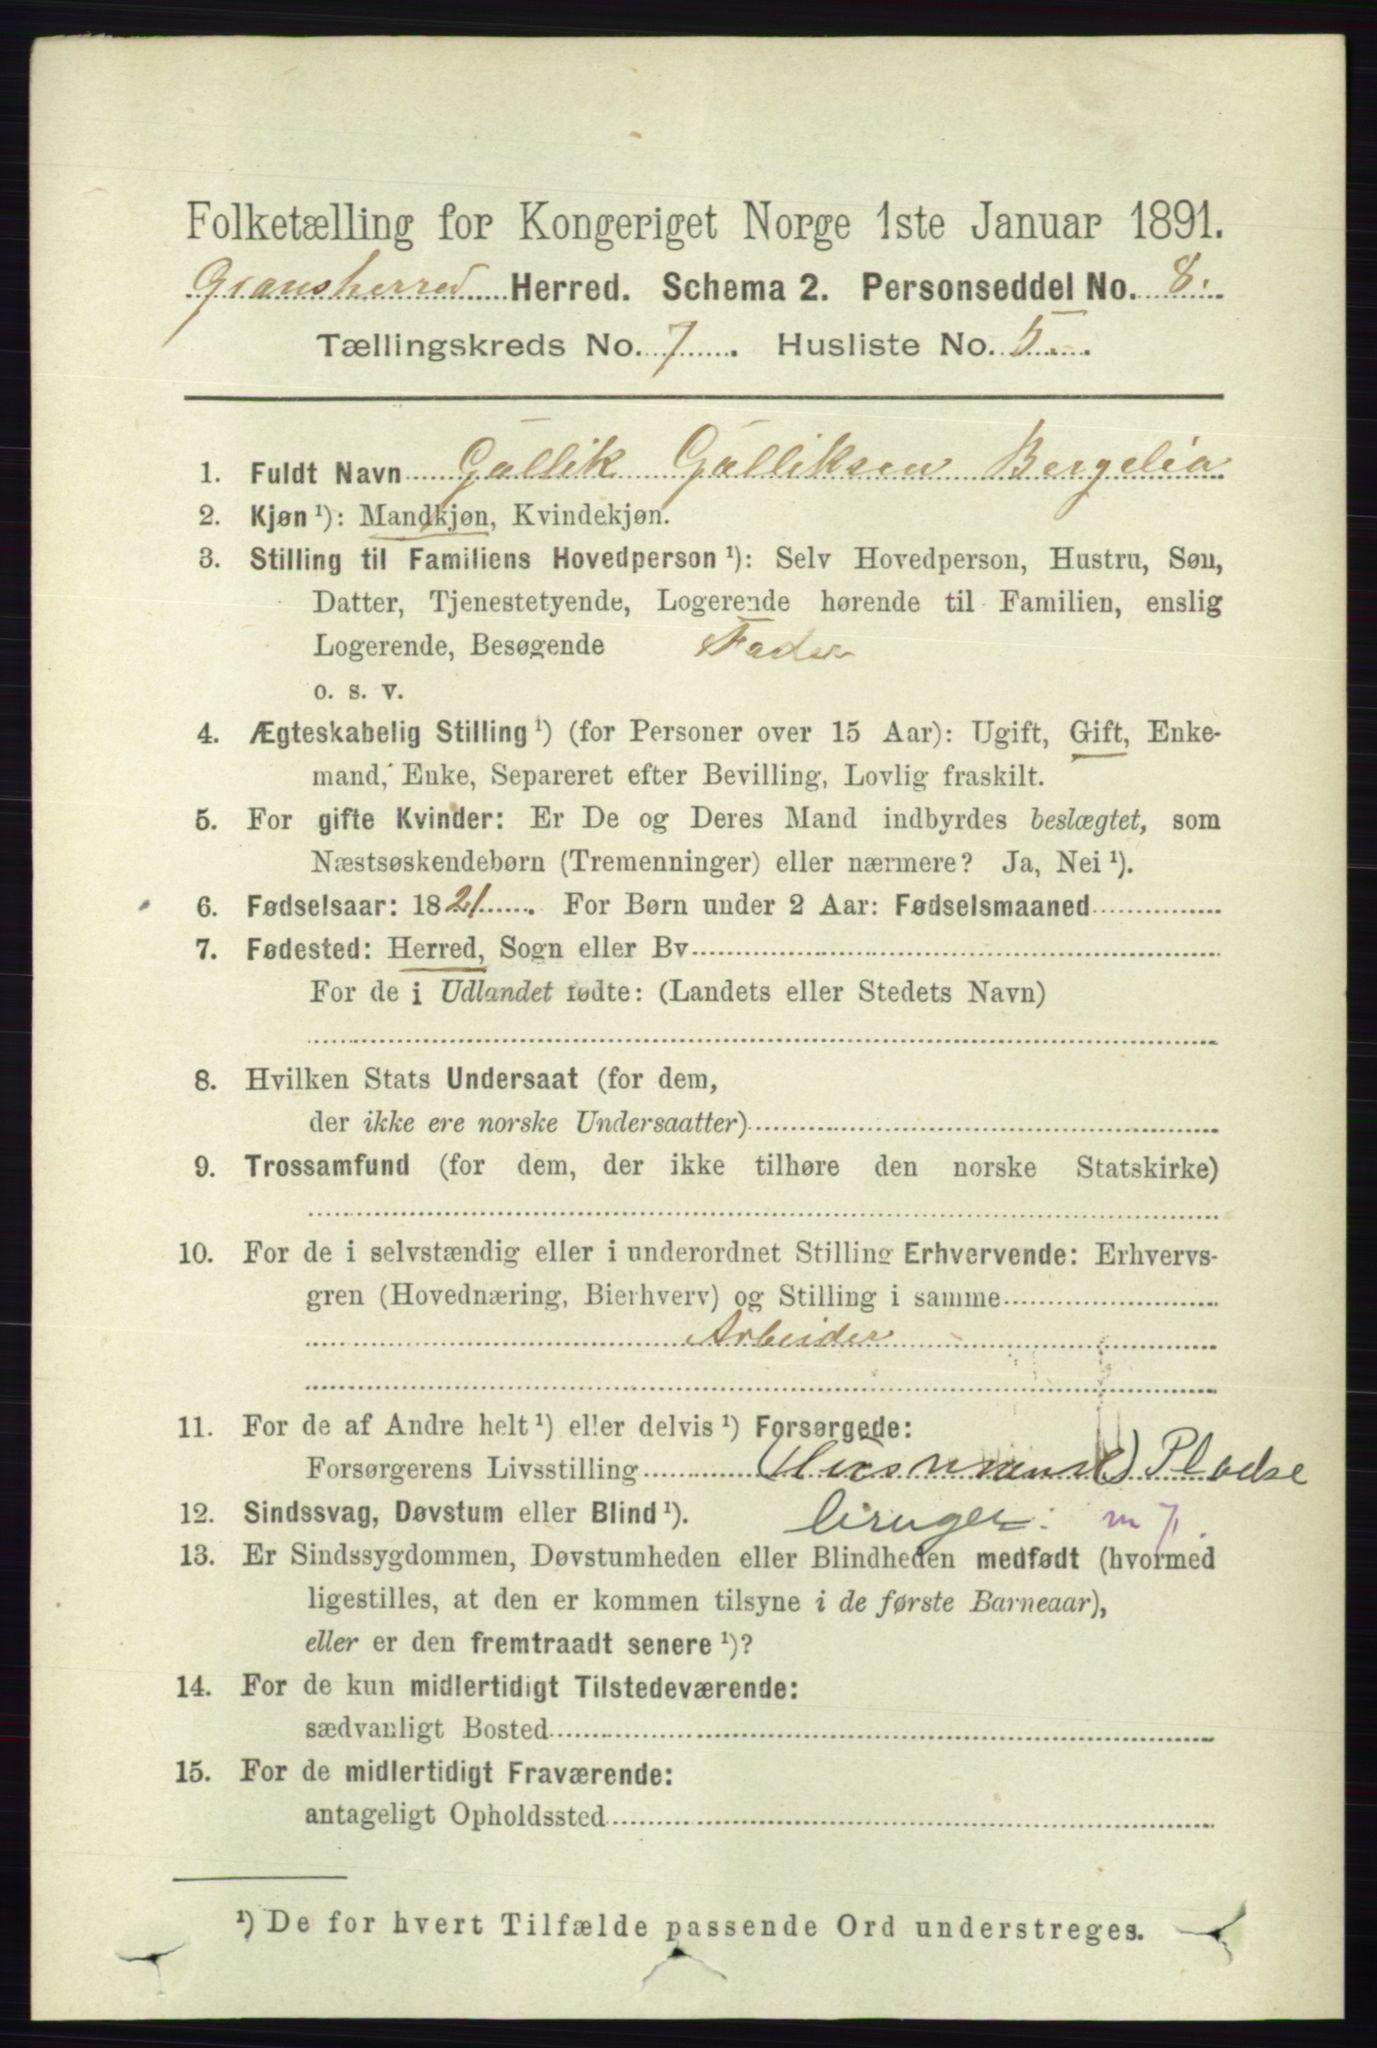 Folketælling for Kongeriget Norge 1ste Januar 1891.
Gransherred Herred. Schema 2. Personseddel No. 8.
Tællingskreds No. 7. Husliste No. 5.
1. Fuldt Navn Gullik Gulliksen Bergelia
2. Kjøn ¹): Mandkjøn, Kvindekjøn.
3. Stilling til Familiens Hovedperson ¹): Selv Hovedperson, Hustru, Søn,
Datter, Tjenestetyende, Logerende hørende til Familien, enslig
Logerende, Besøgende Fader
o. s. v.
4. Ægteskabelig Stilling ¹) (for Personer over 15 Aar): Ugift, Gift, Enke-
mand, Enke, Separeret efter Bevilling, Lovlig fraskilt.
5. For gifte Kvinder: Er De og Deres Mand indbyrdes beslægtet, som
Næstsøskendebørn (Tremenninger) eller nærmere? Ja, Nei ¹).
6. Fødselsaar: 1821. For Børn under 2 Aar: Fødselsmaaned
7. Fødested: Herred, Sogn eller By
For de i Udlandet fødte: (Landets eller Stedets Navn)
8. Hvilken Stats Undersaat (for dem,
der ikke ere norske Undersaatter)
9. Trossamfund (for dem, der ikke tilhøre den norske Statskirke)
10. For de i selvstændig eller i underordnet Stilling Erhvervende: Erhvervs-
gren (Hovednæring, Bierhverv) og Stilling i samme
Arbeider
11. For de af Andre helt ¹) eller delvis ¹) Forsørgede:
Forsørgerens Livsstilling (Husmand) Pladse
12. Sindssvag, Døvstum eller Blind ¹). bruger. m 7.
13. Er Sindssygdommen, Døvstumheden eller Blindheden medfødt (hvormed
ligestilles, at den er kommen tilsyne i de første Barneaar),
eller er den fremtraadt senere ¹)?
14. For de kun midlertidigt Tilstedeværende:
sædvanligt Bosted
15. For de midlertidigt Fraværende:
antageligt Opholdssted
¹) De for hvert Tilfælde passende Ord understreges.